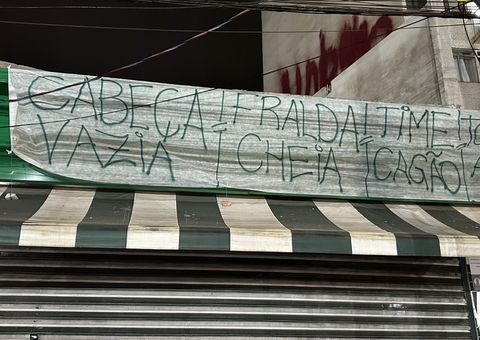 CABEÇA FRALDA TIME
VAZIA CHEIA CAGÃO